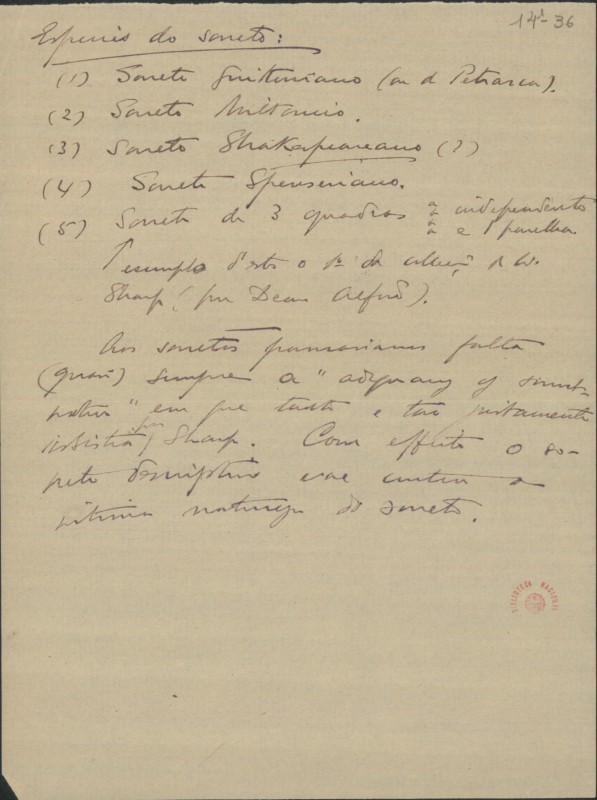 14¹-36
Especies do soneto:
(1) Soneto Guittoniano (ou de Petrarca).
(2) Soneto Miltonico.
(3) Soneto Shakespeareano (?)
(4) Soneto Spenseriano.
(5) Soneto de 3 quadras independentes
e 1 parelha
exemplo d'este o 1º da de W.
Sharp, por Dean Alford).
Aos sonetos parnasianos falta
(quasi) sempre a "adequacy of
" em que tanto e tão justamente
insistia Sharp. Com effeito o so-
neto descriptivo vae contra a
intima natureza do soneto.
BIBLIOTECA NACIONAL